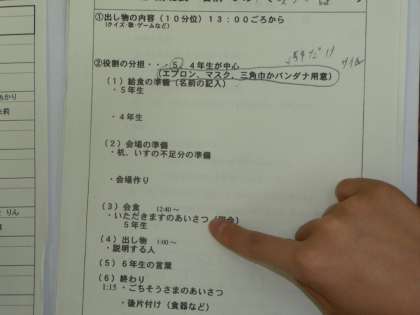 ①出し物の内容（１０分位）１３：００ごろから
（クイズ・歌・ゲームなど）
②役割の分担・・・５，４年生が中心
（エプロン、マスク、三角巾かバンダナ用意）
（１）給食の準備（名前の記入）
・５年生
・４年生
（２）会場の準備
・机、いすの不足分の準備
・会場作り
（３）会食 12:40～
・いただきますのあいさつ
５年生
（４）出し物 1:00～
・説明する人
（５）６年生の言葉
（６）終わり
1:15 ・ごちそうさまのあいさつ
・後片付け（食器など）